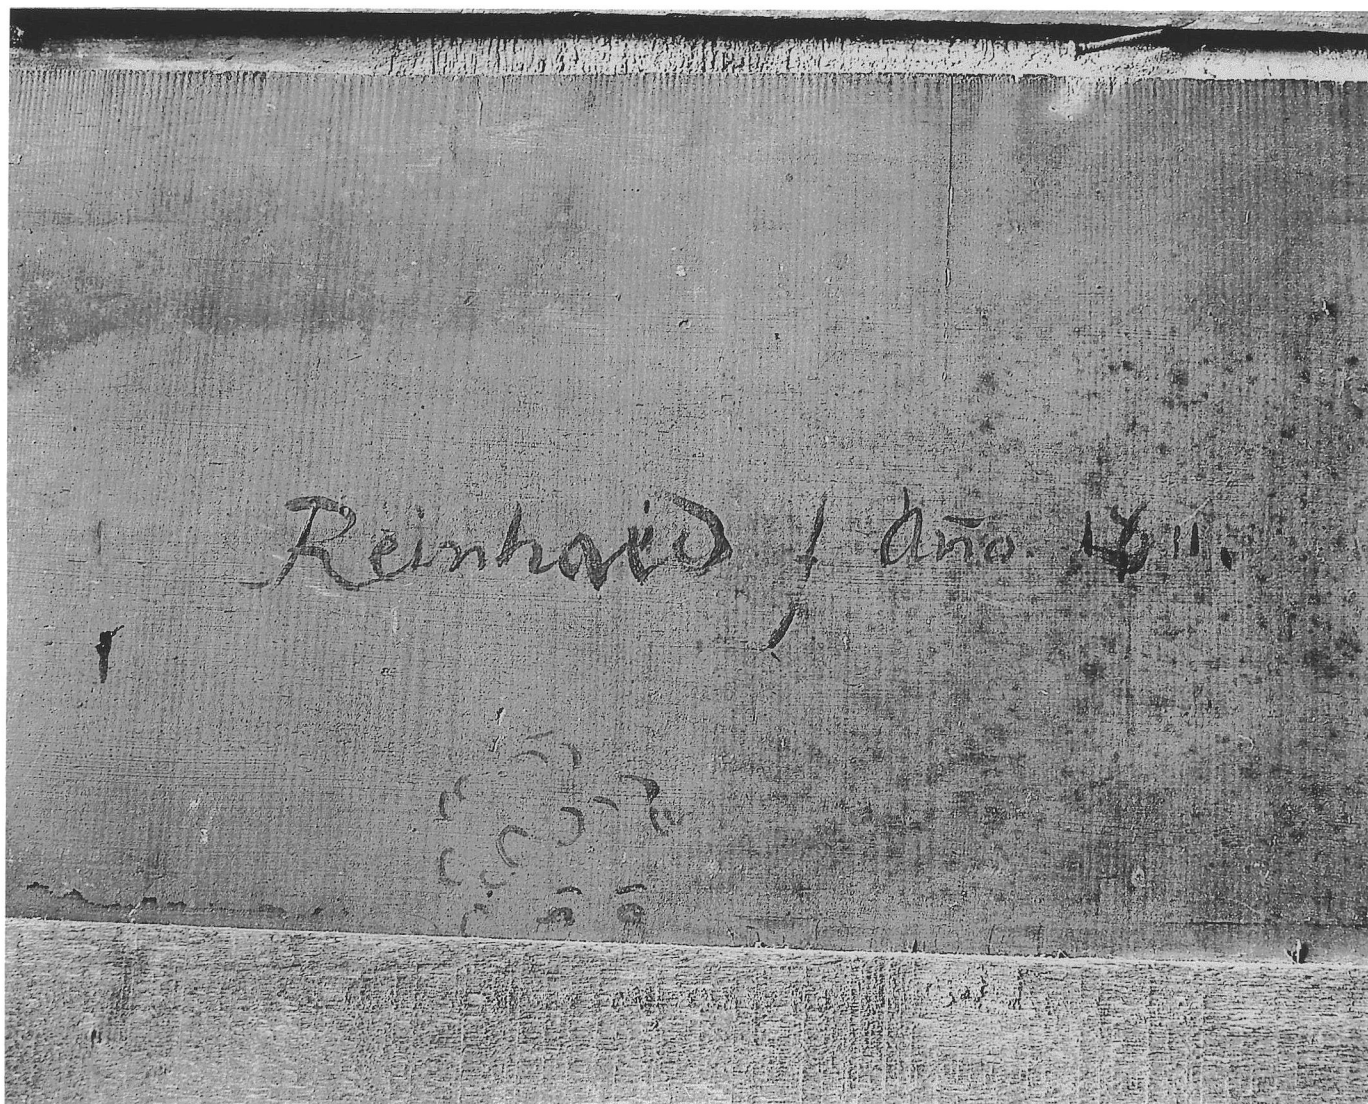 Reinhard, Año. 1611.